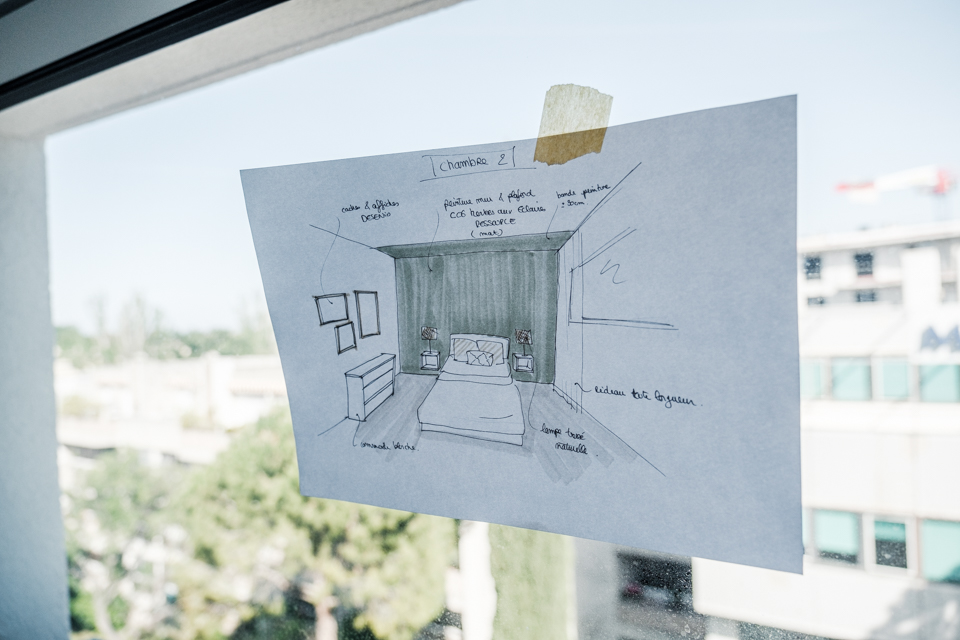 Chambre 2
cadres & affiches
DESENIO
peinture mur & plafond
CC6 herbes aux éclairs
RESSOURCE
(mat)
bande peinture
± 30cm
rideau toute longueur.
lampe
naturelle.
commode blanche